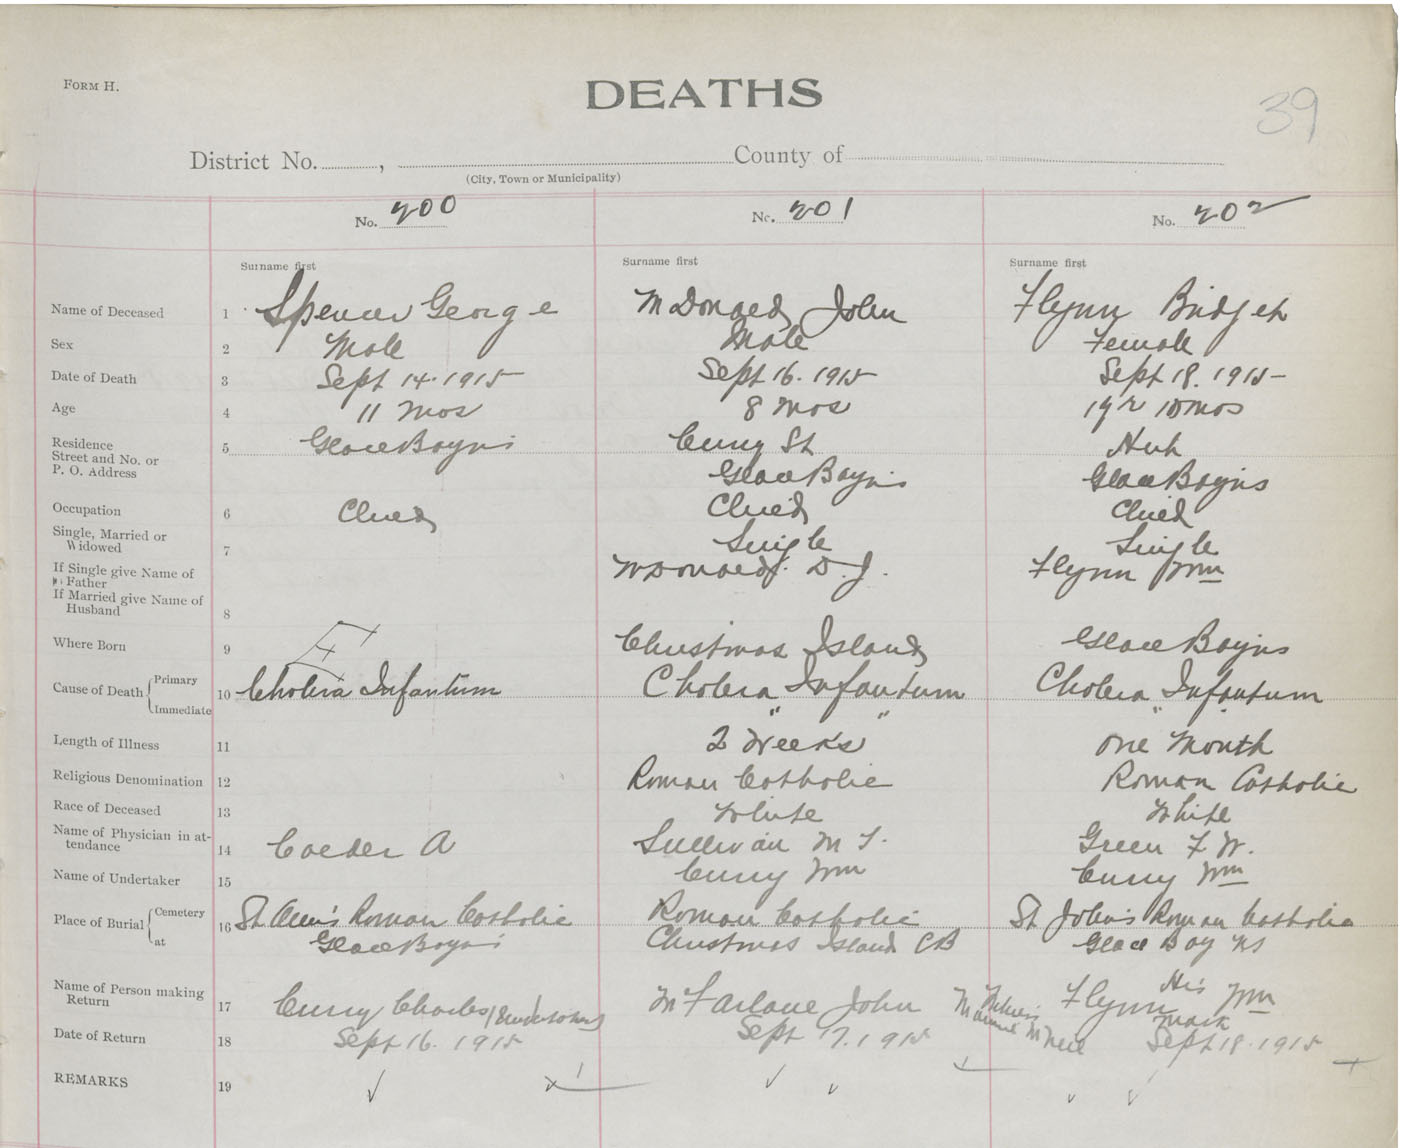 FORM H.
DEATHS
39
District No. , County of
(City, Town or Municipality)
No. 200 No. 201 No. 202
Surname first Surname first Surname first
Name of Deceased 1 Spencer George McDonald John Flynn Bridget
Sex 2 Male Male Female
Date of Death 3 Sept 14. 1915 Sept 16. 1915 Sept 18. 1915
Age 4 11 mos 8 mos 1 yr 10 mos
Residence
Street and No. or 5 Glace Bay ns Curry St Hub
P. O. Address Glace Bay ns Glace Bay ns
Occupation 6 Child Child Child
Single, Married or
Widowed 7 Single Single
If Single give Name of
Father McDonald D. J. Flynn Wm
If Married give Name of
Husband 8
Where Born 9 Christmas Island Glace Bay ns
Cause of Death Primary 10 Cholera Infantum Cholera Infantum Cholera Infantum
Immediate " " " "
Length of Illness 11 2 Weeks One Month
Religious Denomination 12 Roman Catholic Roman Catholic
Race of Deceased 13 White White
Name of Physician in at-
tendance 14 Calder A Sullivan M T. Green F W.
Name of Undertaker 15 Curry Wm Curry Wm
Place of Burial Cemetery 16 St Ann's Roman Catholic Roman Catholic St John's Roman Catholic
at Glace Bay ns Christmas Island CB Glace Bay NS
Name of Person making
Return 17 Curry Charles McFarlane John Flynn His Wm
mark
McNeil
Date of Return 18 Sept 16. 1915 Sept 17. 1915 Sept 18. 1915
REMARKS 19